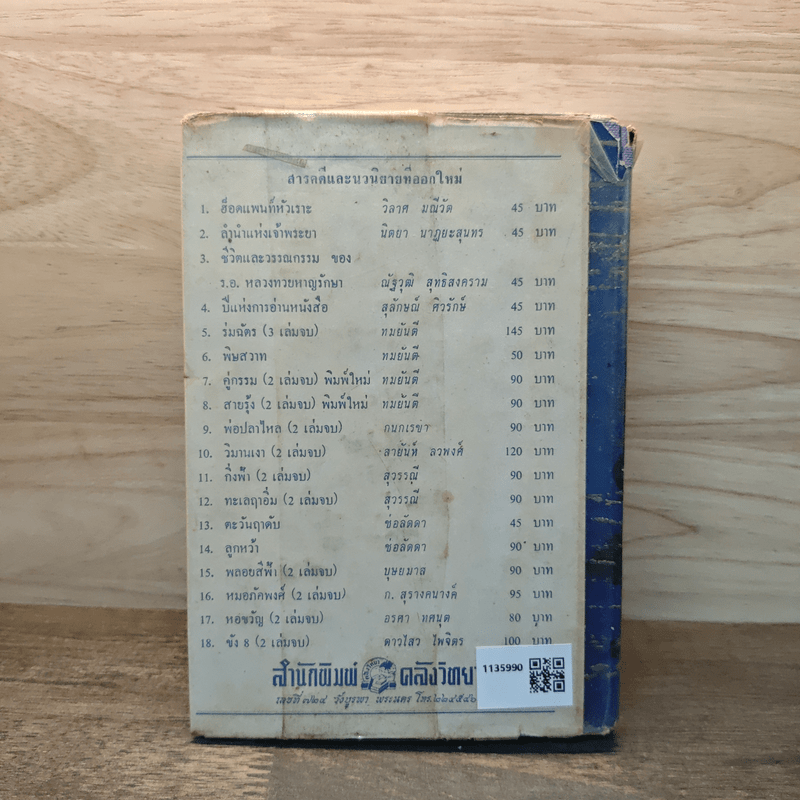 สารคดีและนวนิยายที่ออกใหม่
1. ฮ็อตแพนท์หัวเราะ วิลาศ มณีวัต 45 บาท
2. ลำนำแห่งเจ้าพระยา นิตยา นาฏยะสุนทร 45 บาท
3. ชีวิตและวรรณกรรม ของ
ร.อ. หลวงทวยหาญรักษา ณัฐวุฒิ สุทธิสงคราม 45 บาท
4. ปีแห่งการอ่านหนังสือ สุลักษณ์ ศิวรักษ์ 45 บาท
5. ร่มฉัตร (3 เล่มจบ) ทมยันตี 145 บาท
6. พิษสวาท ทมยันตี 50 บาท
7. คู่กรรม (2 เล่มจบ) พิมพ์ใหม่ ทมยันตี 90 บาท
8. สายรุ้ง (2 เล่มจบ) พิมพ์ใหม่ ทมยันตี 90 บาท
9. พ่อปลาไหล (2 เล่มจบ) กนกเรขา 90 บาท
10. วิมานเงา (2 เล่มจบ) สายันห์ ลวพงศ์ 120 บาท
11. กิ่งฟ้า (2 เล่มจบ) สุวรรณี 90 บาท
12. ทะเลฤาอิ่ม (2 เล่มจบ) สุวรรณี 90 บาท
13. ตะวันฤาดับ ช่อลัดดา 45 บาท
14. ลูกหว้า ช่อลัดดา 90 บาท
15. พลอยสีฟ้า (2 เล่มจบ) บุษยมาล 90 บาท
16. หมอภัคพงศ์ (2 เล่มจบ) ก. สุรางคนางค์ 95 บาท
17. หอขวัญ (2 เล่มจบ) อรศา ทศนุต 80 บาท
18. ขัง 8 (2 เล่มจบ) ดาวไสว ไพจิตร 100 บาท
สำนักพิมพ์ คลังวิทยา
เลขที่ ๗๒๔ วังบูรพา พระนคร โทร.๒๒๔๕๔๖
1135990